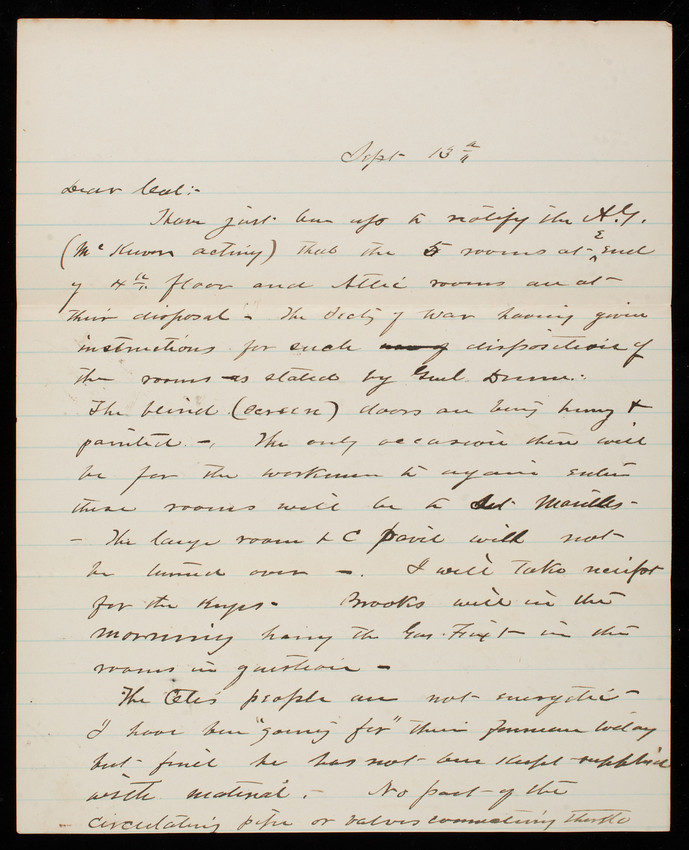 Sept 13th
Dear Col:-
Have just been up to notify the A.G.
(McKeever acting) that the 5 rooms at E end
of 4th floor and Attic rooms are at
their disposal - The Secty of War having given
instructions for such disposition of
the rooms as stated by Genl Dunn.-
The blind (screen) doors are being hung &
painted -. The only occasion there will
be for the workmen to again enter
these rooms will be to Set Mantles-
- The large room & C Pavil will not
be turned over -. I will take receipt
for the Keys- Brooks will in the
morning hang the Gas-Fixt in the
rooms in question -
The people are not energetic -
I have been "going for" their Foreman today
but find he has not been kept supplied
with material.- No part of the
- circulating pipe or valves connecting